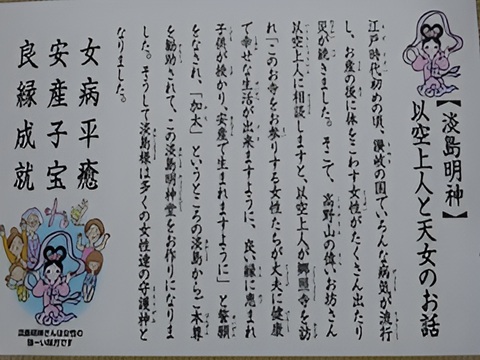 【淡島明神】
以空上人と天女のお話
江戸時代初めの頃、讃岐の国でいろんな病気が流行
し、お産の後に体をこわす女性がたくさん出たり
災が続きました。そこで、高野山の偉いお坊さん
以空上人に相談しますと、以空上人が郷照寺を訪
れ「このお寺をお参りする女性たちが丈夫に健康
で幸せな生活が出来ますように、良い縁に恵まれ
子供が授かり、安産で生まれますように」と誓願
をなされ、「加太」というところの淡島からご本尊
を勧請されて、この淡島明神堂をお作りになりま
した。そうして淡島様は多くの女性達の守護神と
なりました。
女病平癒
安産子宝
良縁成就
淡島明神さんは女性の
強ーい味方です